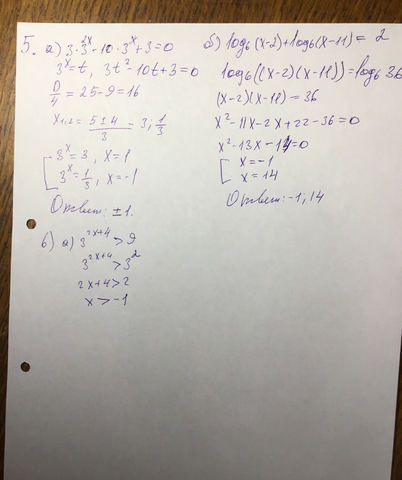 5. а) 3·3^2x - 10·3^x + 3 = 0
3^x = t, 3t^2 - 10t + 3 = 0
D/4 = 25 - 9 = 16
x1,2 = (5 ± 4)/3 - 3; 1/3
[ 3^x = 3, x = 1
3^x = 1/3, x = -1
Ответ: ± 1.
б) log6 (x-2) + log6 (x-11) = 2
log6 ((x-2)(x-11)) = log6 36
(x-2)(x-11) = 36
x^2 - 11x - 2x + 22 - 36 = 0
x^2 - 13x - 14 = 0
[ x = -1
x = 14
Ответ: -1; 14
6) а) 3^2x+4 > 9
3^2x+4 > 3^2
2x + 4 > 2
x > -1